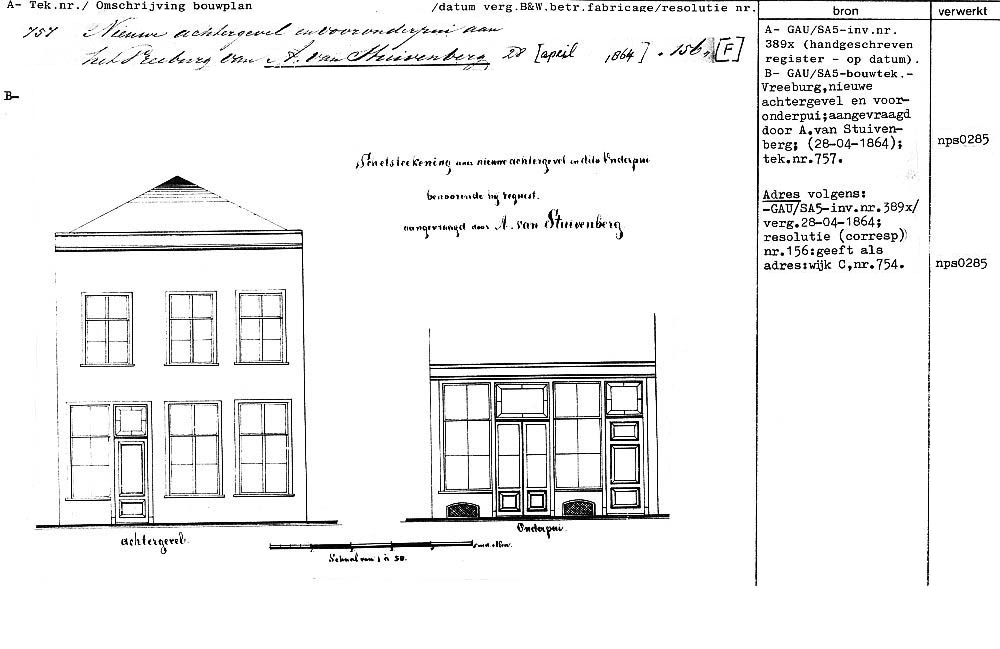 A- Tek.nr./ Omschrijving bouwplan /datum verg.B&W.betr.fabricage/resolutie nr.
757 Nieuwe achtergevel en vooronderpui aan
het Vreeburg van A. van Stuivenberg 28 [april 1864] . 156, [F]
B-
Schetsteekening van nieuwe achtergevel en dito Onderpui
behoorende bij request.
aangevraagd door A. van Stuivenberg
achtergevel.
Onderpui.
Schaal van 1 à 50.
bron
A- GAU/SA5-inv.nr.
389x (handgeschreven
register - op datum).
B- GAU/SA5-bouwtek.-
Vreeburg,nieuwe
achtergevel en voor-
onderpui;aangevraagd
door A.van Stuiven-
berg; (28-04-1864);
tek.nr.757.
Adres volgens:
-GAU/SA5-inv.nr.389x/
verg.28-04-1864;
resolutie (corresp)
nr.156:geeft als
adres:wijk C,nr.754.
verwerkt
nps0285
nps0285